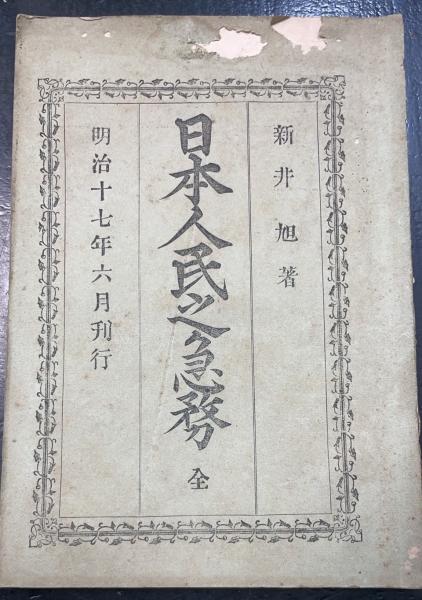 新井旭著
日本人民之急務 全
明治十七年六月刊行